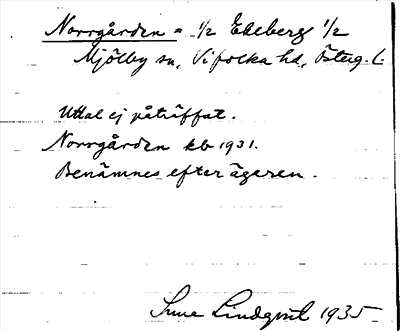 Norrgården = 1/2 Ekeberg 1/2
Mjölby sn, Vifolka hd, Östg. l.
Uttal ej påträffat.
Norrgården kb 1931.
Benämnes efter ägaren.
Sune Lindqvist 1935